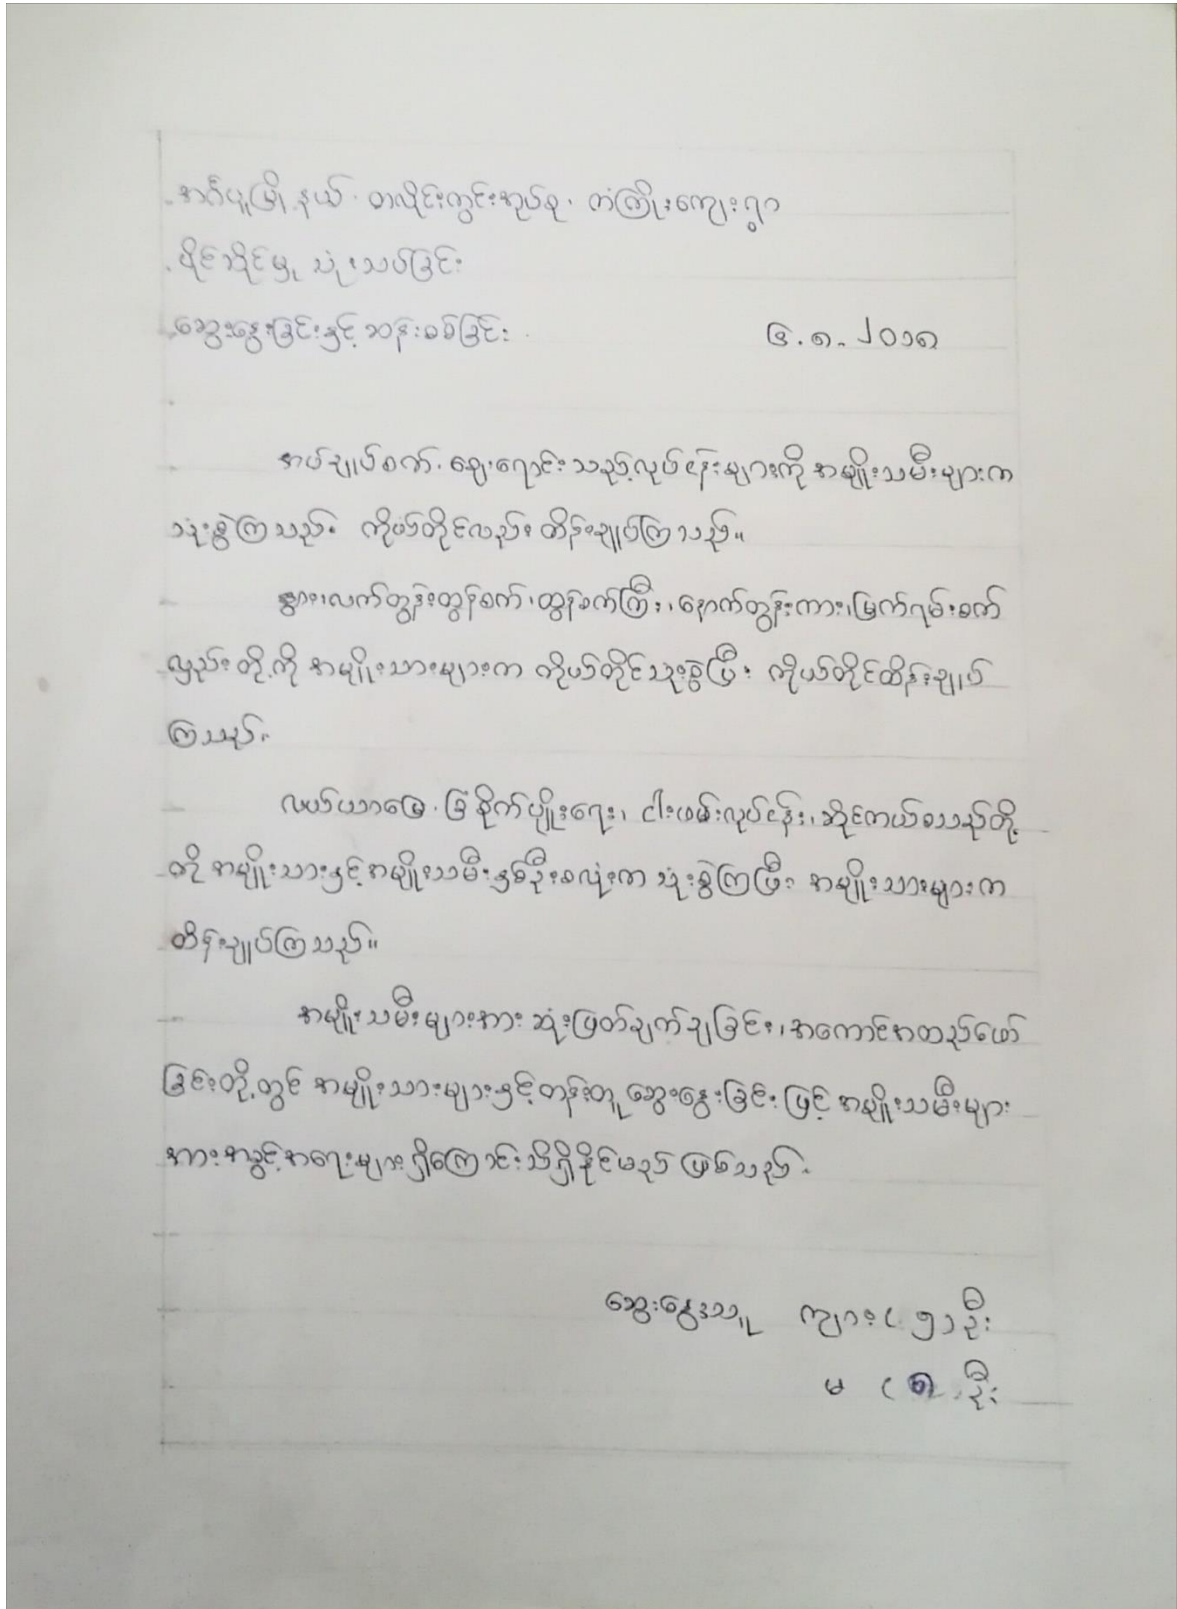 အင်္ဂပူမြို့နယ်၊ တလိုင်းကွင်းအုပ်စု၊ ကံကြိုးကျေးရွာ
ပိုင်ဆိုင်မှု သုံးသပ်ခြင်း
ဆွေးနွေးခြင်းနှင့် ဆန်းစစ်ခြင်း ၆.၈.၂၀၁၈
အပ်ချုပ်စက်၊ ဈေးရောင်းသည့်လုပ်ငန်းများကို အမျိုးသမီးများက
သုံးစွဲကြသည်။ ကိုယ်တိုင်လည်း ထိန်းချုပ်ကြသည်။
နွား၊ လက်တွန်းထွန်စက်၊ ထွန်စက်ကြီး၊ နောက်တွန်းကား၊ မြက်ရမ်းစက်
လှည်း တို့ကို အမျိုးသားများက ကိုယ်တိုင်သုံးစွဲပြီး ကိုယ်တိုင်ထိန်းချုပ်
ကြသည်။
လယ်ယာမြေ၊ ခြံစိုက်ပျိုးရေး၊ ငါးဖမ်းလုပ်ငန်း၊ ဆိုင်ကယ်စသည်တို့
ကို အမျိုးသားနှင့်အမျိုးသမီးနှစ်ဦးစလုံးက သုံးစွဲကြပြီး အမျိုးသားများက
ထိန်းချုပ်ကြသည်။
အမျိုးသမီးများအား ဆုံးဖြတ်ချက်ချခြင်း၊ အကောင်အထည်ဖော်
ခြင်းတို့တွင် အမျိုးသားများနှင့်တန်းတူ ဆွေးနွေးခြင်းဖြင့် အမျိုးသမီးများ
အားအခွင့်အရေးများရှိကြောင်းသိရှိနိုင်မည် ဖြစ်သည်။
ဆွေးနွေးသူ ကျား (၅) ဦး
မ (၈) ဦး